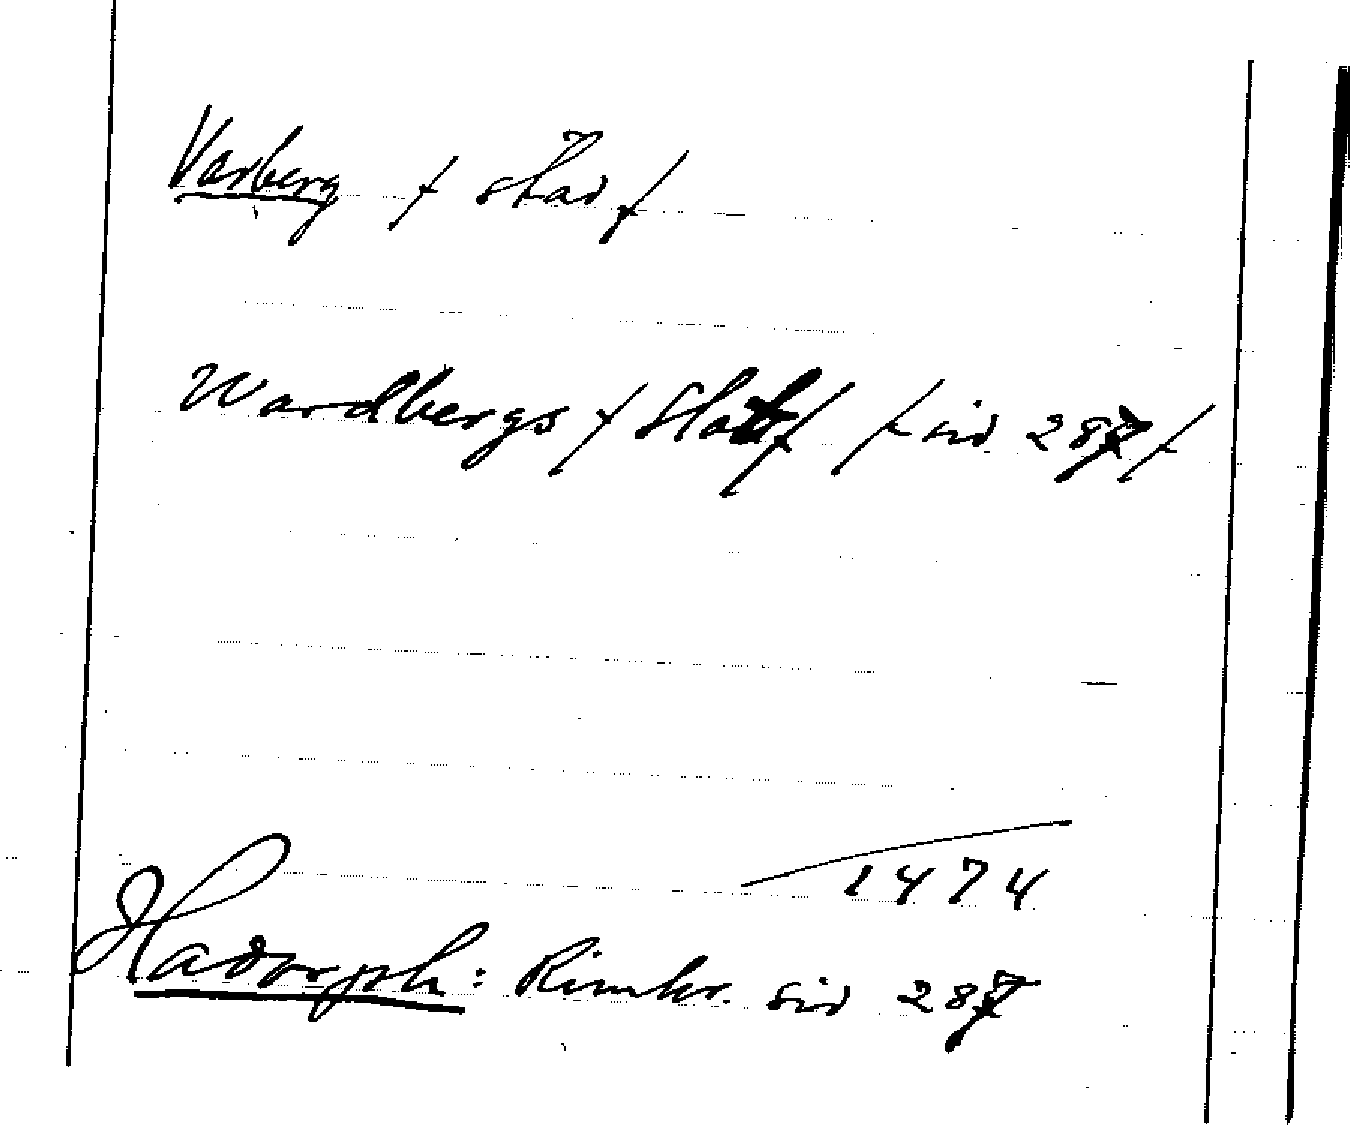 Varberg / stad /
Wardbergs / Slott / / sid 287 /
1474
Hadorph: Rimkr. sid 287